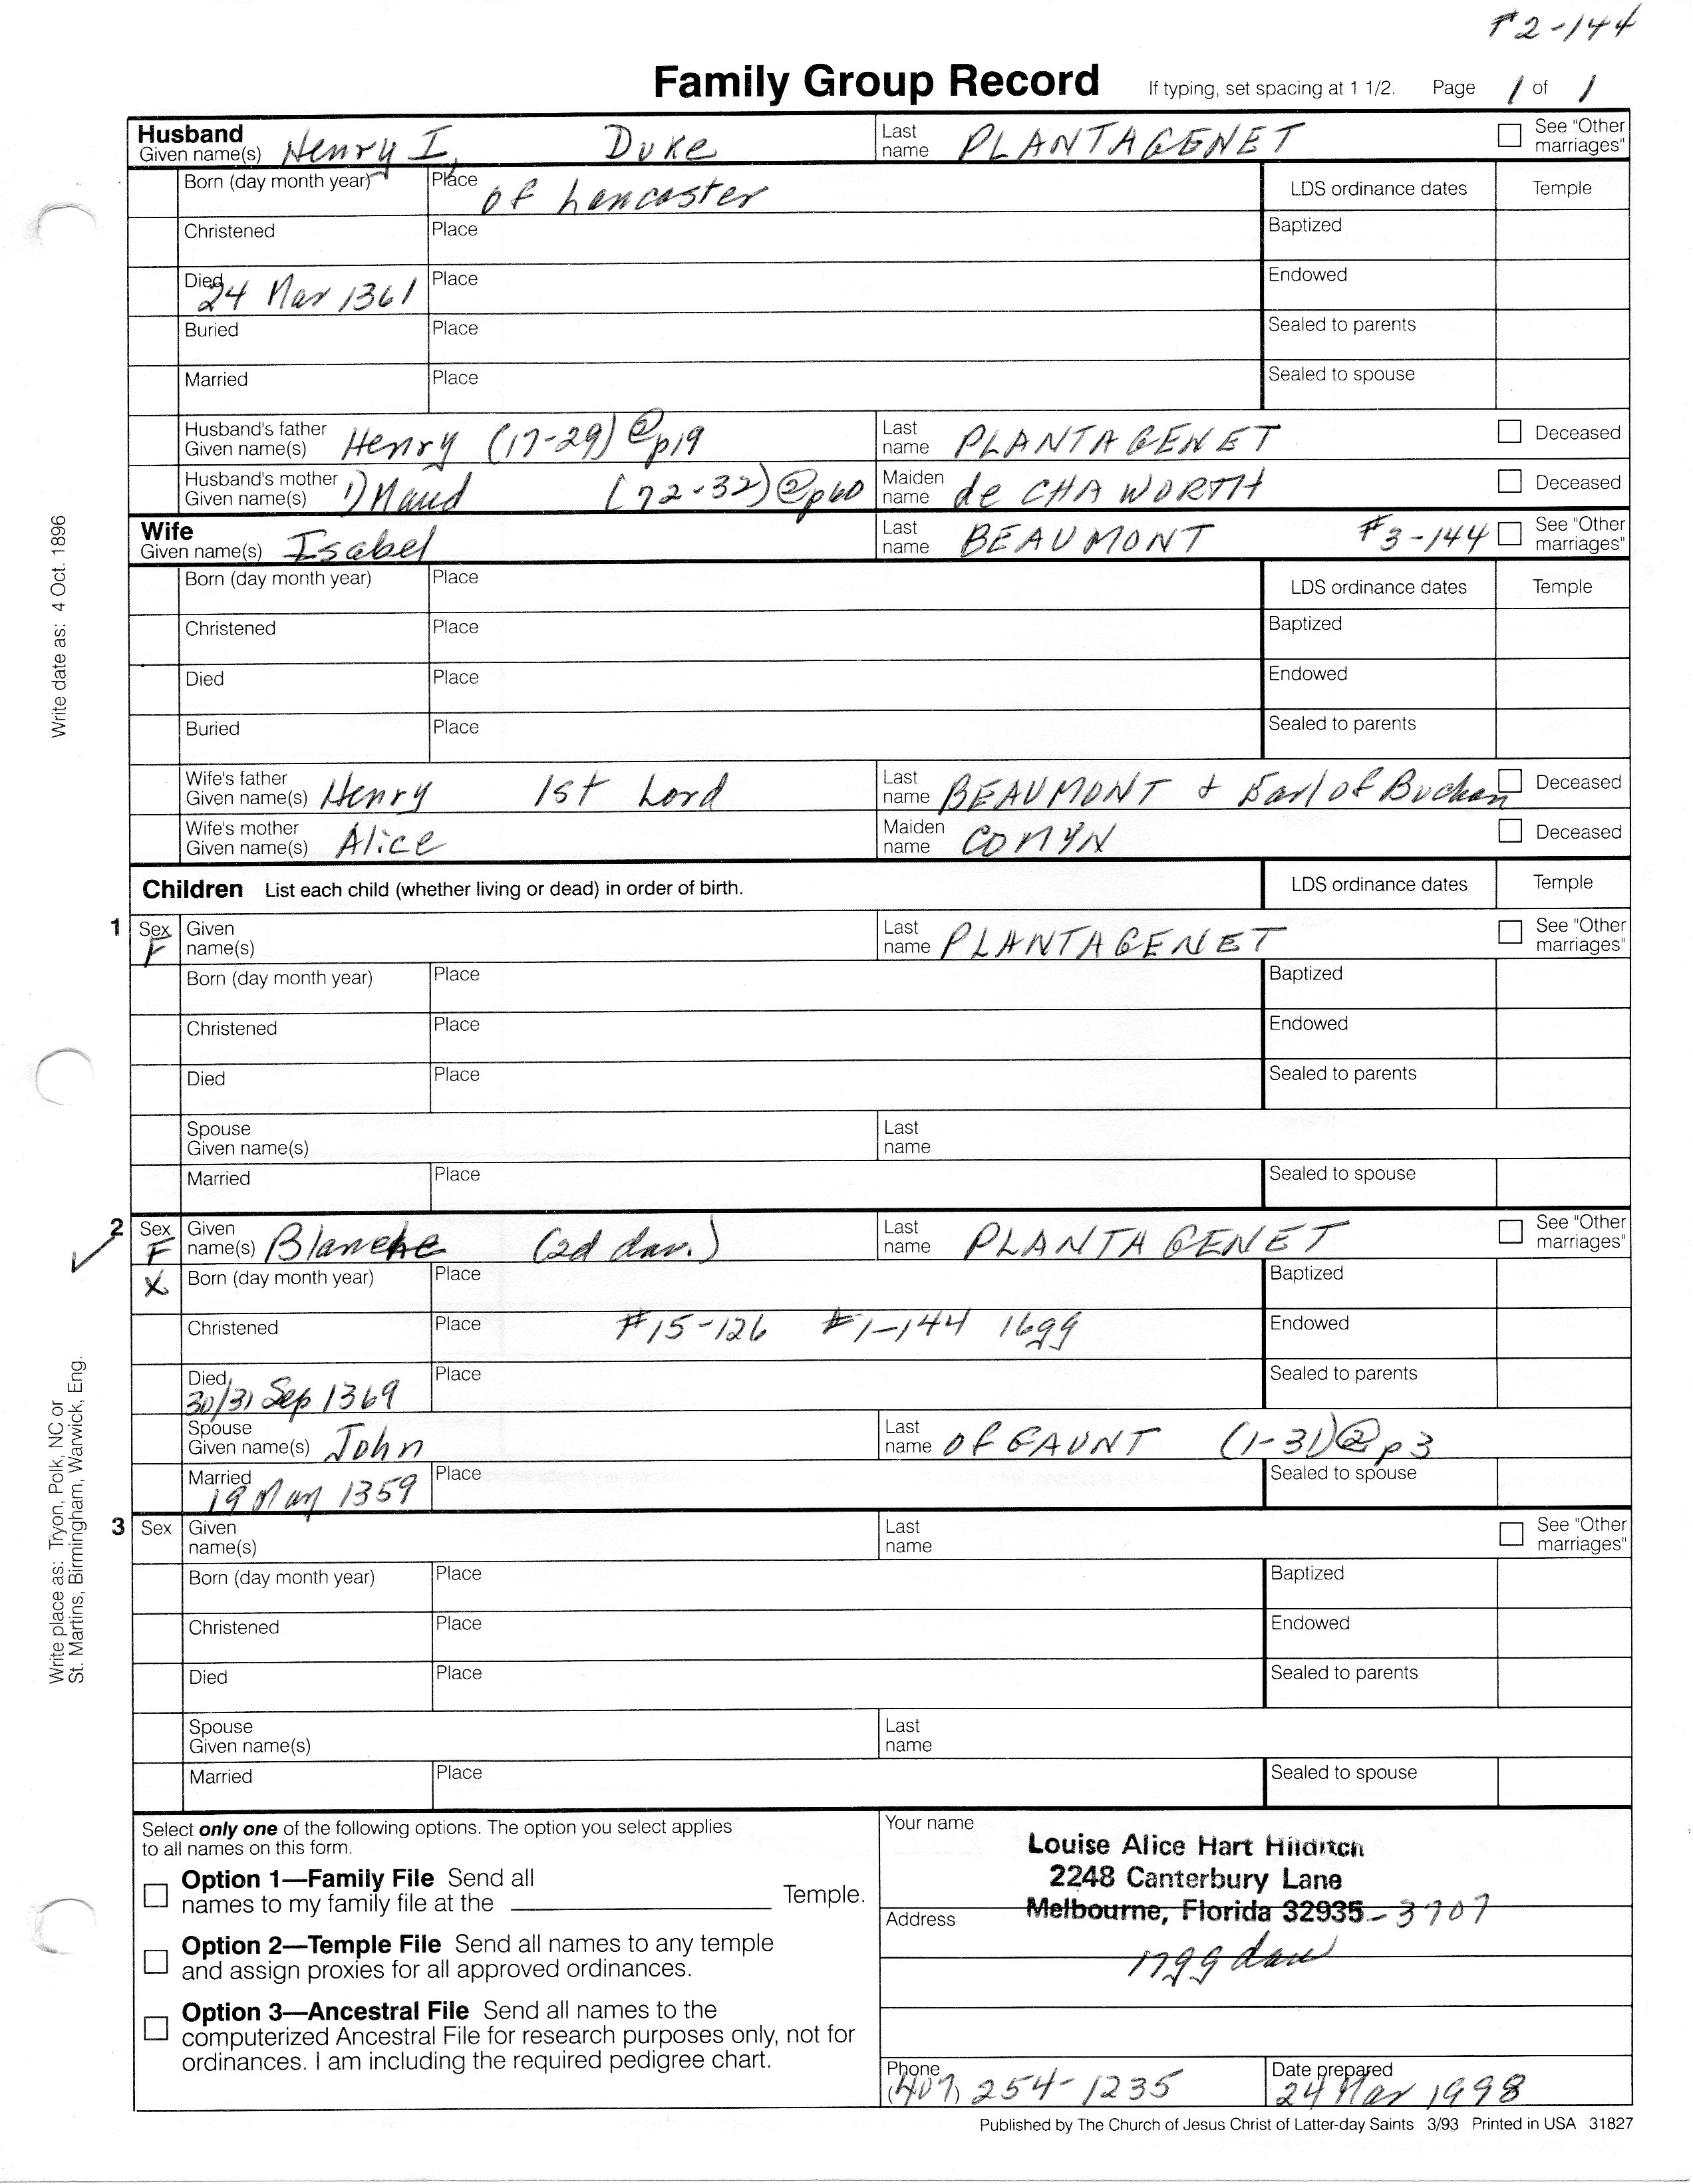 #2-144
Family Group Record If typing, set spacing at 1 1/2. Page 1 of 1
Husband
Given name(s) Henry I, Duke Last name PLANTAGENET See "Other marriages"
Born (day month year) Place of Lancaster LDS ordinance dates Temple
Christened Place Baptized
Died 24 Mar 1361 Place Endowed
Buried Place Sealed to parents
Married Place Sealed to spouse
Husband's father Given name(s) Henry (17-29)@p19 Last name PLANTAGENET Deceased
Husband's mother Given name(s) 1) Maud (72-32)@p60 Maiden name de CHAWORTH Deceased
Wife
Given name(s) Isabel Last name BEAUMONT #3-144 See "Other marriages"
Born (day month year) Place LDS ordinance dates Temple
Christened Place Baptized
Died Place Endowed
Buried Place Sealed to parents
Wife's father Given name(s) Henry 1st Lord Last name BEAUMONT + Earl of Buchan Deceased
Wife's mother Given name(s) Alice Maiden name COMYN Deceased
Children List each child (whether living or dead) in order of birth. LDS ordinance dates Temple
1 Sex F Given name(s) Last name PLANTAGENET See "Other marriages"
Born (day month year) Place Baptized
Christened Place Endowed
Died Place Sealed to parents
Spouse Given name(s) Last name
Married Place Sealed to spouse
2 Sex F Given name(s) Blanche (2d dau.) Last name PLANTAGENET See "Other marriages"
X Born (day month year) Place Baptized
Christened Place #15-126 #1-144 16gg Endowed
Died 30/31 Sep 1369 Place Sealed to parents
Spouse Given name(s) John Last name of GAUNT (1-31)@p3
Married 19 May 1359 Place Sealed to spouse
3 Sex Given name(s) Last name See "Other marriages"
Born (day month year) Place Baptized
Christened Place Endowed
Died Place Sealed to parents
Spouse Given name(s) Last name
Married Place Sealed to spouse
Select only one of the following options. The option you select applies
to all names on this form.
Option 1—Family File Send all
names to my family file at the Temple.
Option 2—Temple File Send all names to any temple
and assign proxies for all approved ordinances.
Option 3—Ancestral File Send all names to the
computerized Ancestral File for research purposes only, not for
ordinances. I am including the required pedigree chart.
Your name
Louise Alice Hart Hilditch
2248 Canterbury Lane
Address Melbourne, Florida 32935-3707
17gg dau
Phone (407) 254-1235 Date prepared 24 Mar 1998
Published by The Church of Jesus Christ of Latter-day Saints 3/93 Printed in USA 31827
Write date as: 4 Oct. 1896
Write place as: Tryon, Polk, NC or
St. Martins, Birmingham, Warwick, Eng.